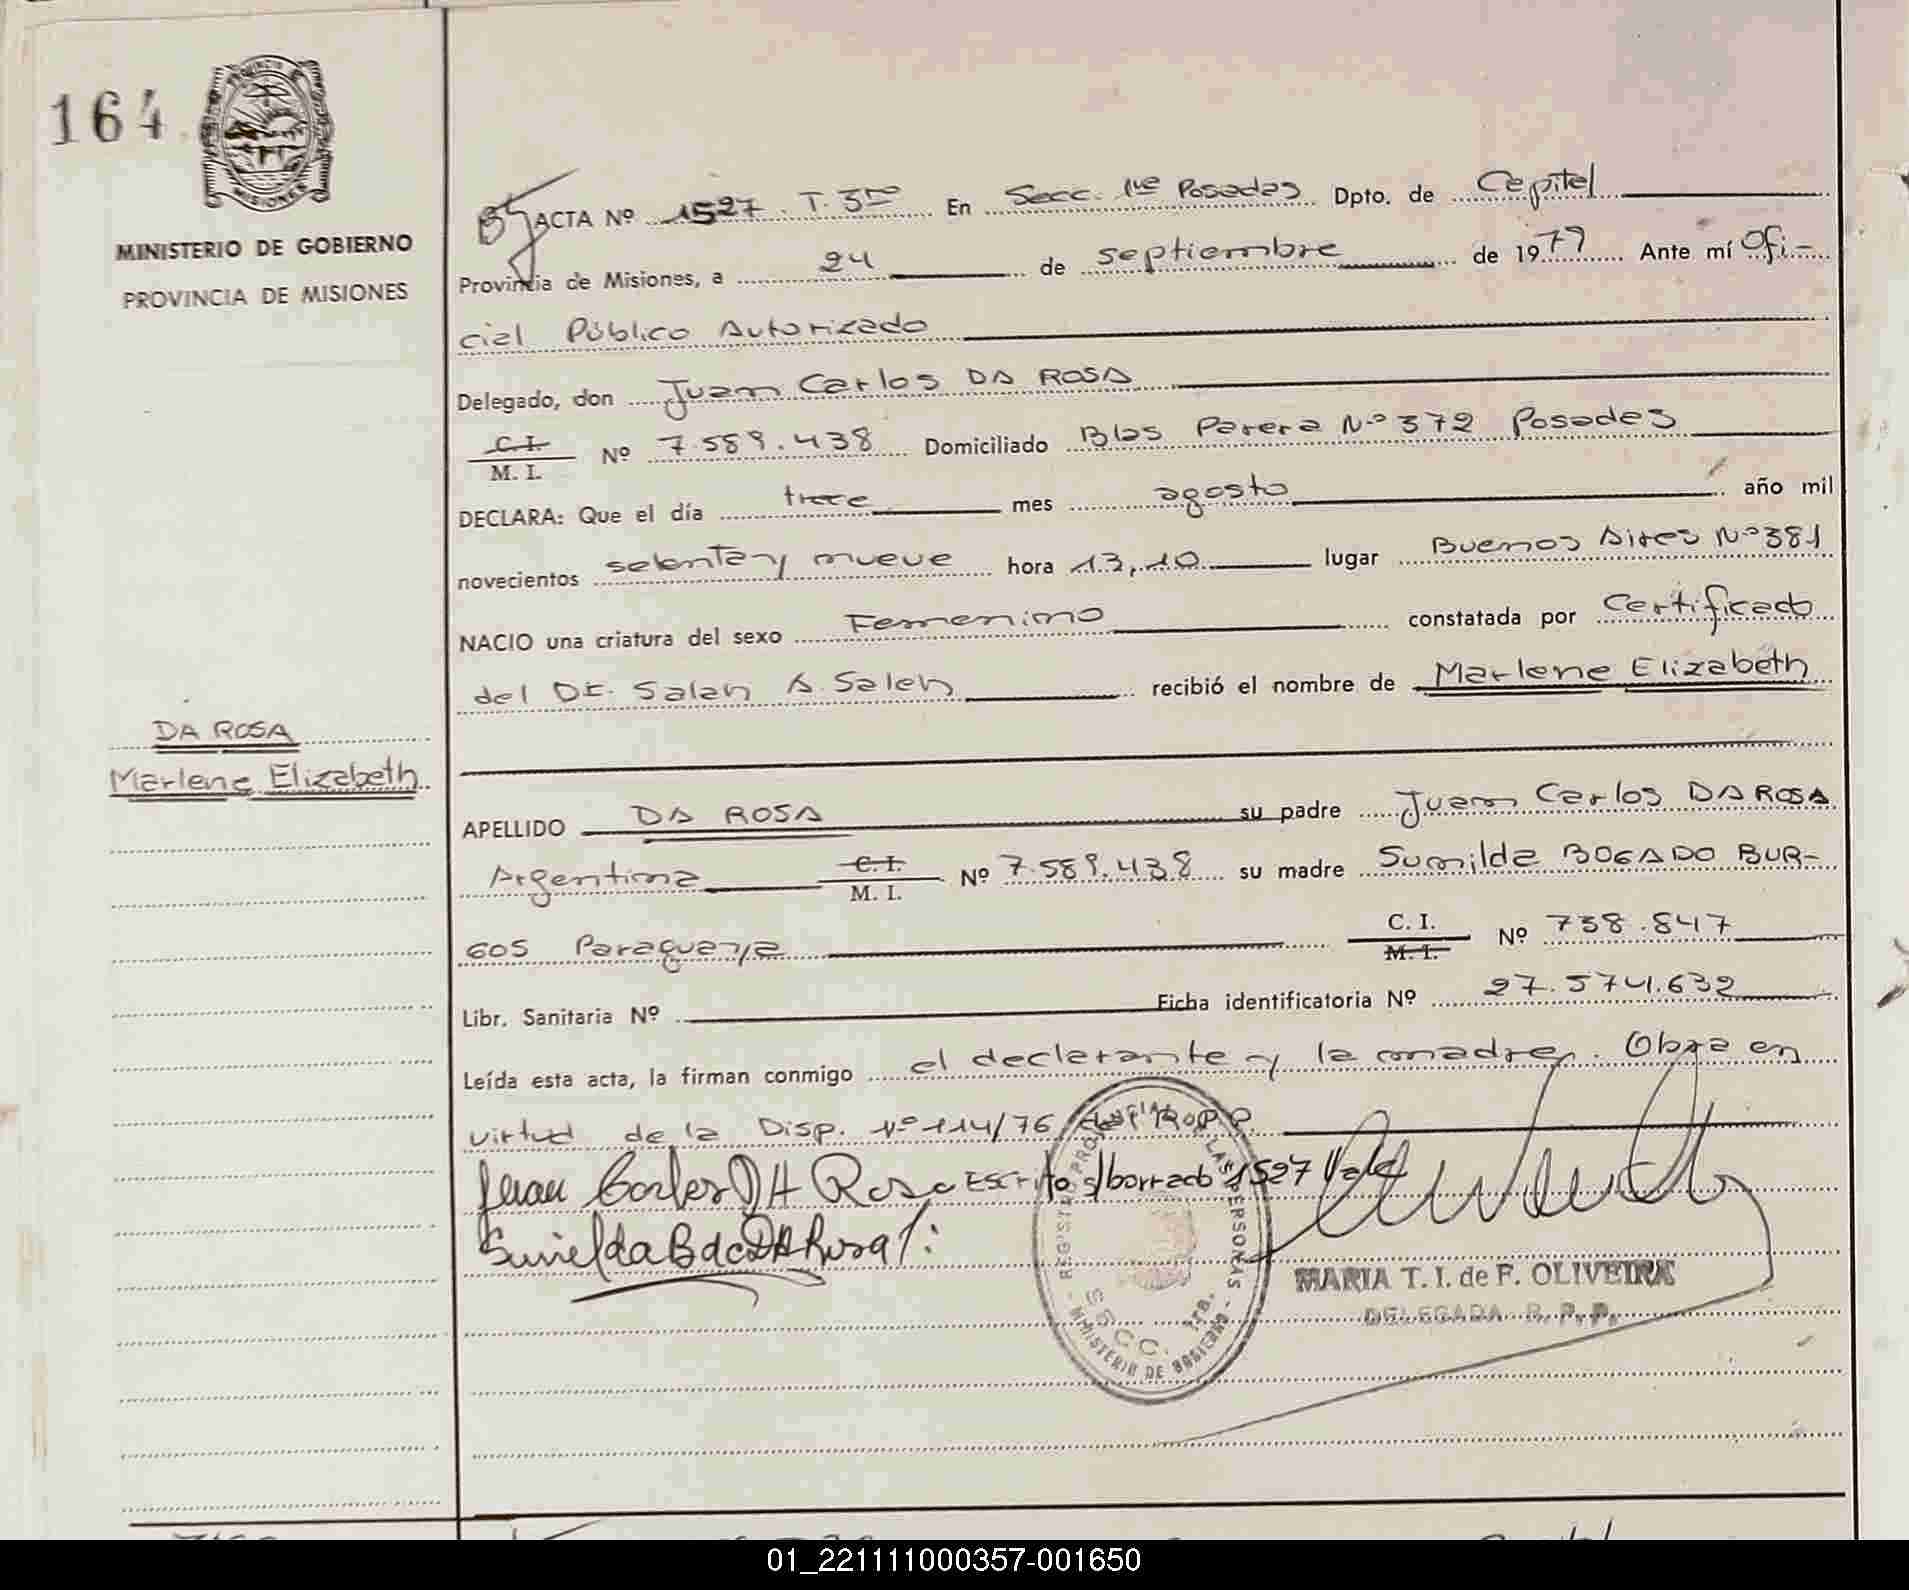 164
MINISTERIO DE GOBIERNO
PROVINCIA DE MISIONES
DA ROSA
Marlene Elizabeth
ACTA Nº 1527. T. 3ro En Secc. 1ra Posadas Dpto. de Capital
Provincia de Misiones, a 24 de septiembre de 1979 Ante mí Ofi-
cial Público Autorizado
Delegado, don Juan Carlos DA ROSA
C. I.
M. I. Nº 7.589.438 Domiciliado Blas Parera Nº 372 Posadas
DECLARA: Que el día trece mes agosto año mil
novecientos setenta y nueve hora 13,10 lugar Buenos Aires Nº 381
NACIO una criatura del sexo Femenino constatada por Certificado
del Dr. Salah A. Saleh recibió el nombre de Marlene Elizabeth
APELLIDO DA ROSA su padre Juan Carlos DA ROSA
Argentina C. I.
M. I. Nº 7.589.438 su madre Sunilda BOGADO BUR-
GOS Paraguaya C. I.
M. I. Nº 738.847
Libr. Sanitaria Nº Ficha identificatoria Nº 27.574.632
Leída esta acta, la firman conmigo el declarante y la madre. Obra en
virtud de la Disp. Nº 114/76 del R.P.P.
Juan Carlos DA Rosa Escrito s/borrado "1527 Vale
Sunilda B de DA Rosa
REGISTRO PROVINCIAL DE LAS PERSONAS
SECC. 1RA.
MINISTERIO DE GOBIERNO
MARIA T. I. de F. OLIVEIRA
DELEGADA R. P. P.
01_221111000357-001650